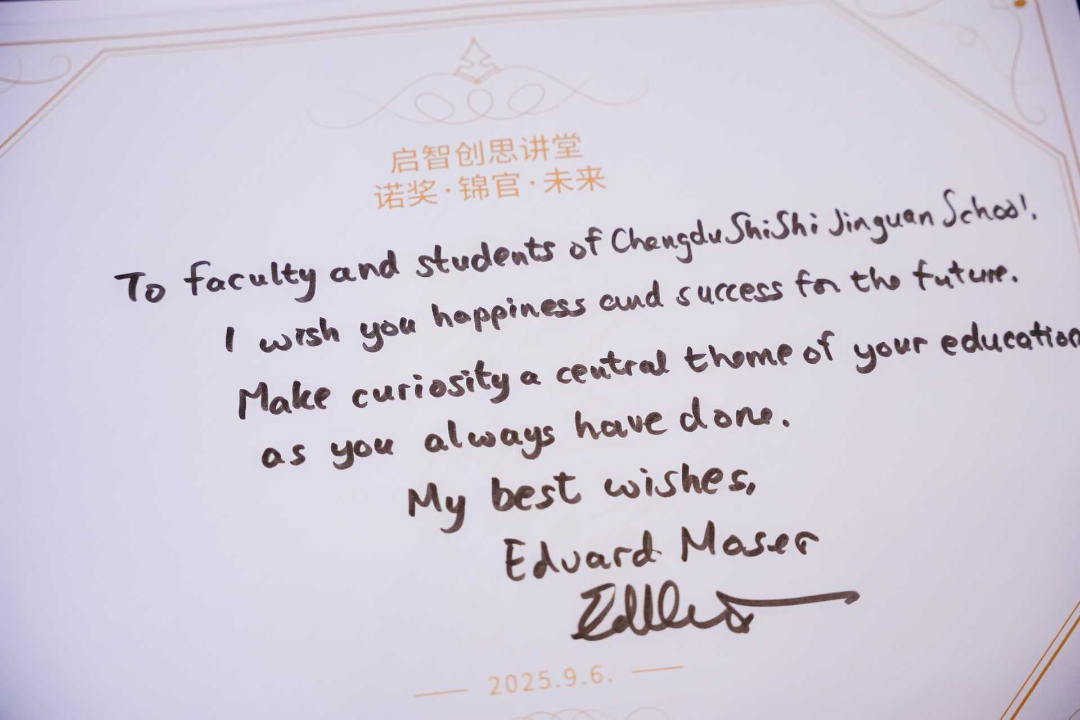 启智创思讲堂
诺奖·锦官·未来
To faculty and students of Chengdu ShiShi Jinguan School.
I wish you happiness and success for the future.
Make curiosity a central theme of your education
as you always have done.
My best wishes,
Edvard Moser
2025.9.6.